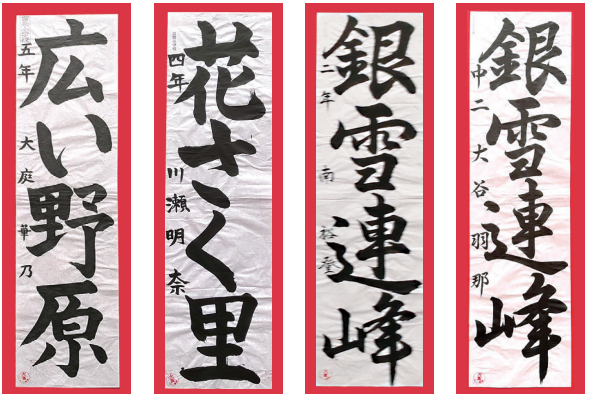 広い野原
五年 大庭 華乃
花さく里
四年 川瀬明奈
銀雪連峰
二年 南
銀雪連峰
中二 大谷羽那